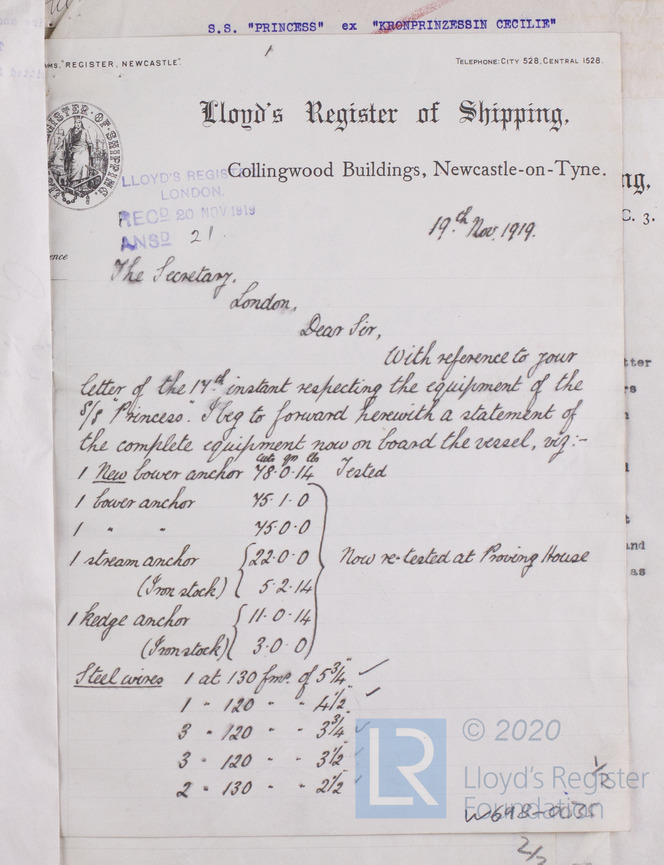 S.S. "PRINCESS" ex "KRONPRINZESSIN CECILIE"
"REGISTER, NEWCASTLE".
TELEPHONE: CITY 528, CENTRAL 1528.
Lloyd's Register of Shipping,
Collingwood Buildings, Newcastle-on-Tyne.
LLOYD'S REGISTER
LONDON.
RECD 20 NOV 1919
ANSD 21.
19th Nov. 1919.
The Secretary,
London,
Dear Sir,
With reference to your
letter of the 17th instant respecting the equipment of the
S/S "Princess". I beg to forward herewith a statement of
the complete equipment now on board the vessel, viz:-
cwts qrs lbs
1 New bower anchor 78.0.14 Tested
1 bower anchor 75.1.0
1 " " 75.0.0
1 stream anchor 22.0.0 Now re-tested at Proving House
(Iron stock) 5.2.14
1 kedge anchor 11.0.14
(Iron stock) 3.0.0
Steel wires 1 at 130 fms. of 5 3/4" ✓
1 " 120 " " 4 1/2" ✓
3 " 120 " " 3 3/4" ✓
3 " 120 " " 3 1/2" ✓
2 " 130 " " 2 1/2" ✓
LR
© 2020
Lloyd's Register
Foundation
1/2
2/2